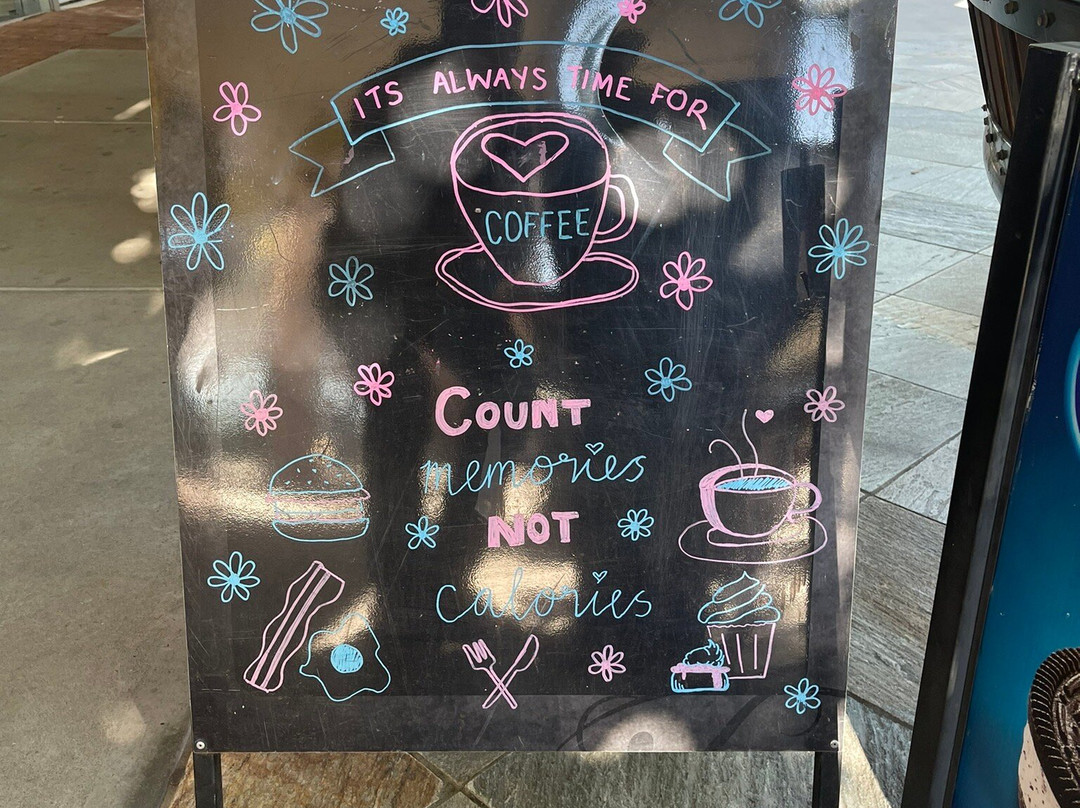 ITS ALWAYS TIME FOR
COFFEE
COUNT
memories
NOT
calories